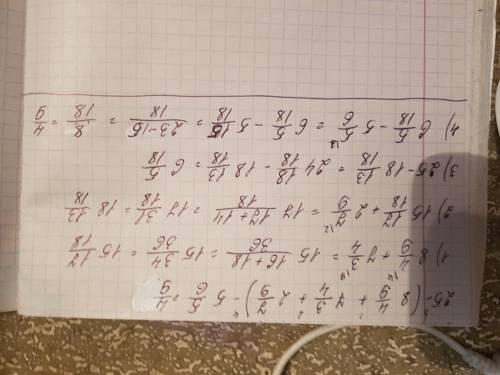 25-(8 4/9 + 7 3/4 + 2 7/9) - 5 5/6 = 4/9
1) 8 4/9 + 7 3/4 = 15 16+18/36 = 15 34/36 = 15 17/18
2) 15 17/18 + 2 7/9 = 17 17+14/18 = 17 31/18 = 18 13/18
3) 25-18 13/18 = 24 18/18 - 18 13/18 = 6 5/18
4) 6 5/18 - 5 5/6 = 6 5/18 - 5 15/18 = 23-15/18 = 8/18 = 4/9